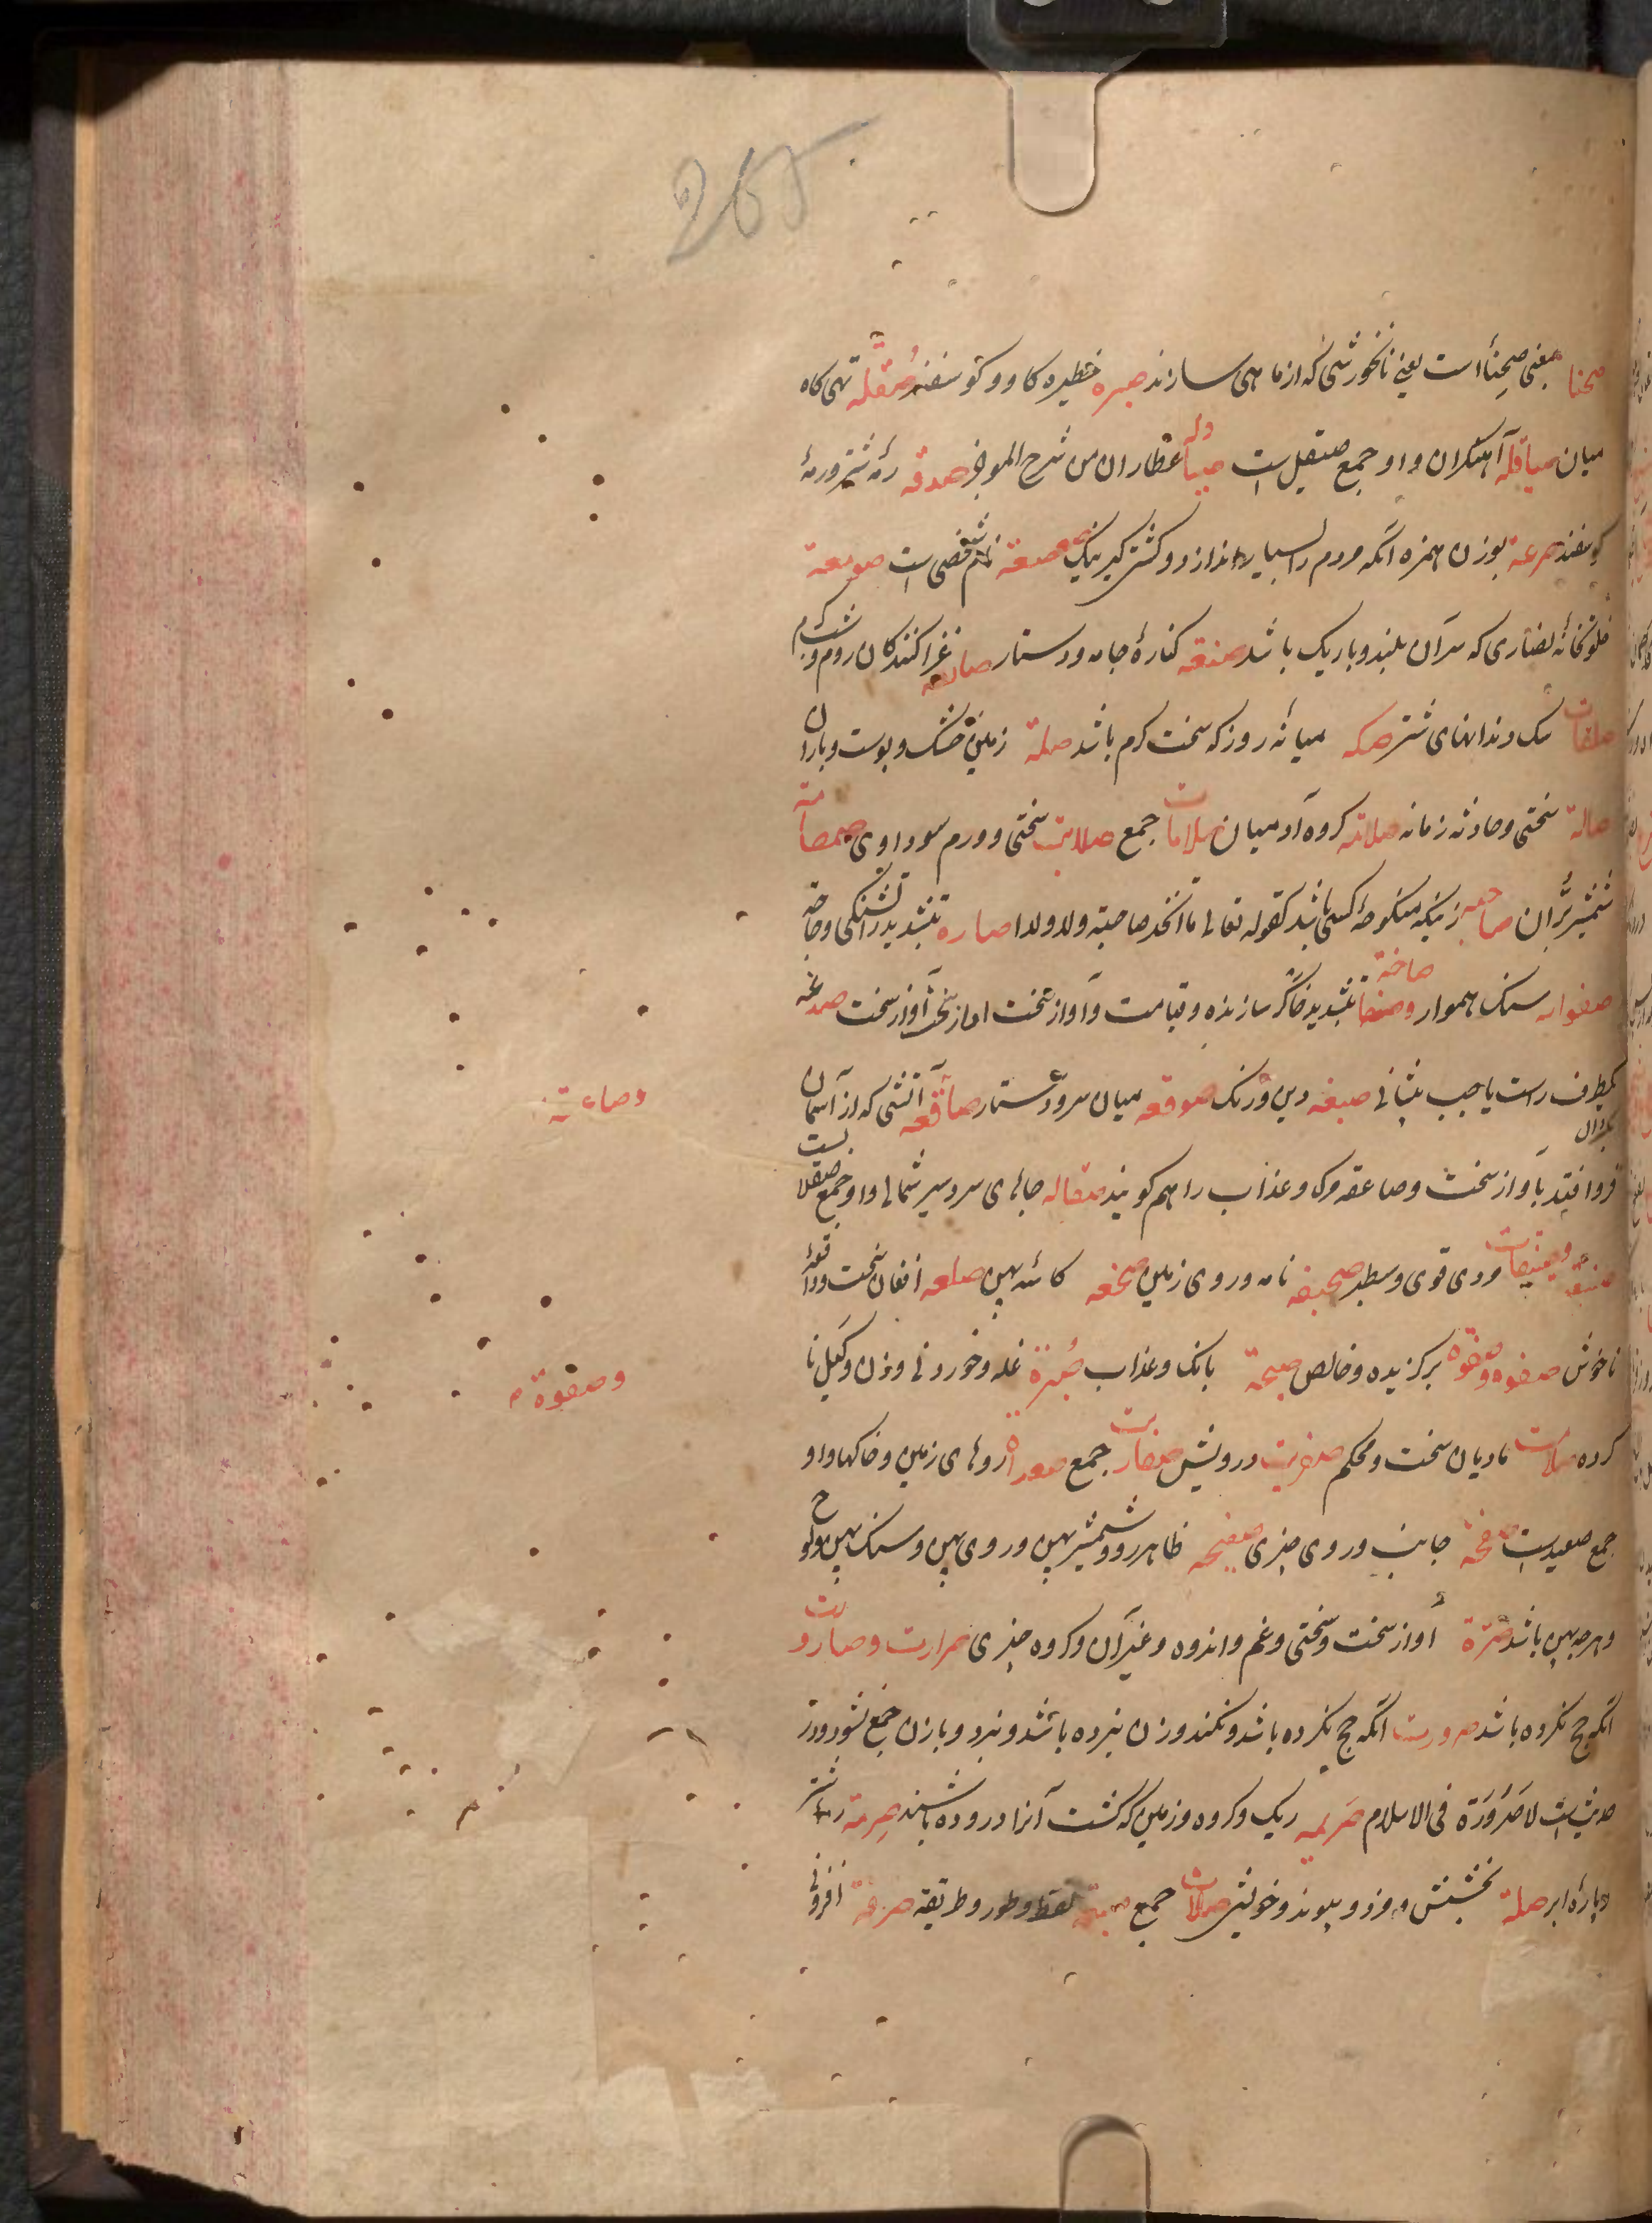 265
صحنا بمعنی صحناء است یعنی نانخورشی که از ماهی سازند صیره خطیره کاو و کوسفند صقله تهی کاه
میان صیاقله آهنکران و او جمع صیقل است عطاران من شرح الموجز صدقه رمه شتر و رمهٔ
کوسفند صرعة بوزن همزه آنکه مردم را بسیار اندازد و کشتی کیر نیک صعصعة نام شخصی است صومعة
خلوتخانهٔ نصاری که سر آن بلند و باریک باشد صنفه کنارهٔ جامه و دستار صائفه غزا کنندکان روم
صلقات دندانهای شتر صکه میانهٔ روز که سخت کرم باشد صلة زمین خشک و پوست و باران
صالة سختی و حادثه زمانه صلامه کروه آدمیان صلامات جمع صلابت سختی و ورم سوداوی صمصامة
شمشیر بران صاحبه زنیکه منکوحهٔ کسی باشد کقوله تعالی ما اتخذ صاحبة ولا ولدا صاره بتشدید را تشنکی و حاجة
صفوانه سنک هموار و صاخة بتشدید خا کر سازنده و قیامت و آواز سخت آواز سخت صدغه
یکطرف راست یا جیب پیشانی صبغه دین و رنک صوقعه میان سر و دستار صاقعه آتشی که از آسمان
وصاعقة
فرو افتد بآواز سخت و صاعقه مرک و عذاب را هم کویند صقالبه جاهای سردسیر شمالی و او جمع صقلابست
مردی قوی و سطبر صحیفه نامه و روی زمین صحفه کاسهٔ پهن صلقه افغان سخت و واقعهٔ
ناخوش صفوه و صفوه برکزیده و خالص صیحة بانک و عذاب صبرة غله و خوردنی وزن و کیل نا
وصفوة م
کرده مادیان سخت و محکم درویش جمع روهای زمین و خاکها و او
جمع صعید است صفحة جانب و روی چیزی صفیحه ظاهر رو و شمشیر پهن و روی پهن و سنک پهن و لوح
و هرچه پهن باشد صرة آواز سخت و سختی و غم و اندوه و غیر آن و کروه چیزی صرارت و صارورت
آنکه حج نکرده باشد صرورت آنکه حج نکرده باشد و نکند و زن نبرده باشد و نبرد و با زن جمع نشود و در
حدیث است لا صرورة فی الاسلام صریمه ریک و کروه و زمین که کشت آنرا دروده باشند صرمة رمهٔ شتر
و پارهٔ ابر صلة بخشش و مزد و پیوند و خویشی صلات جمع لفظ و طور و طریقه صرفة افزونی